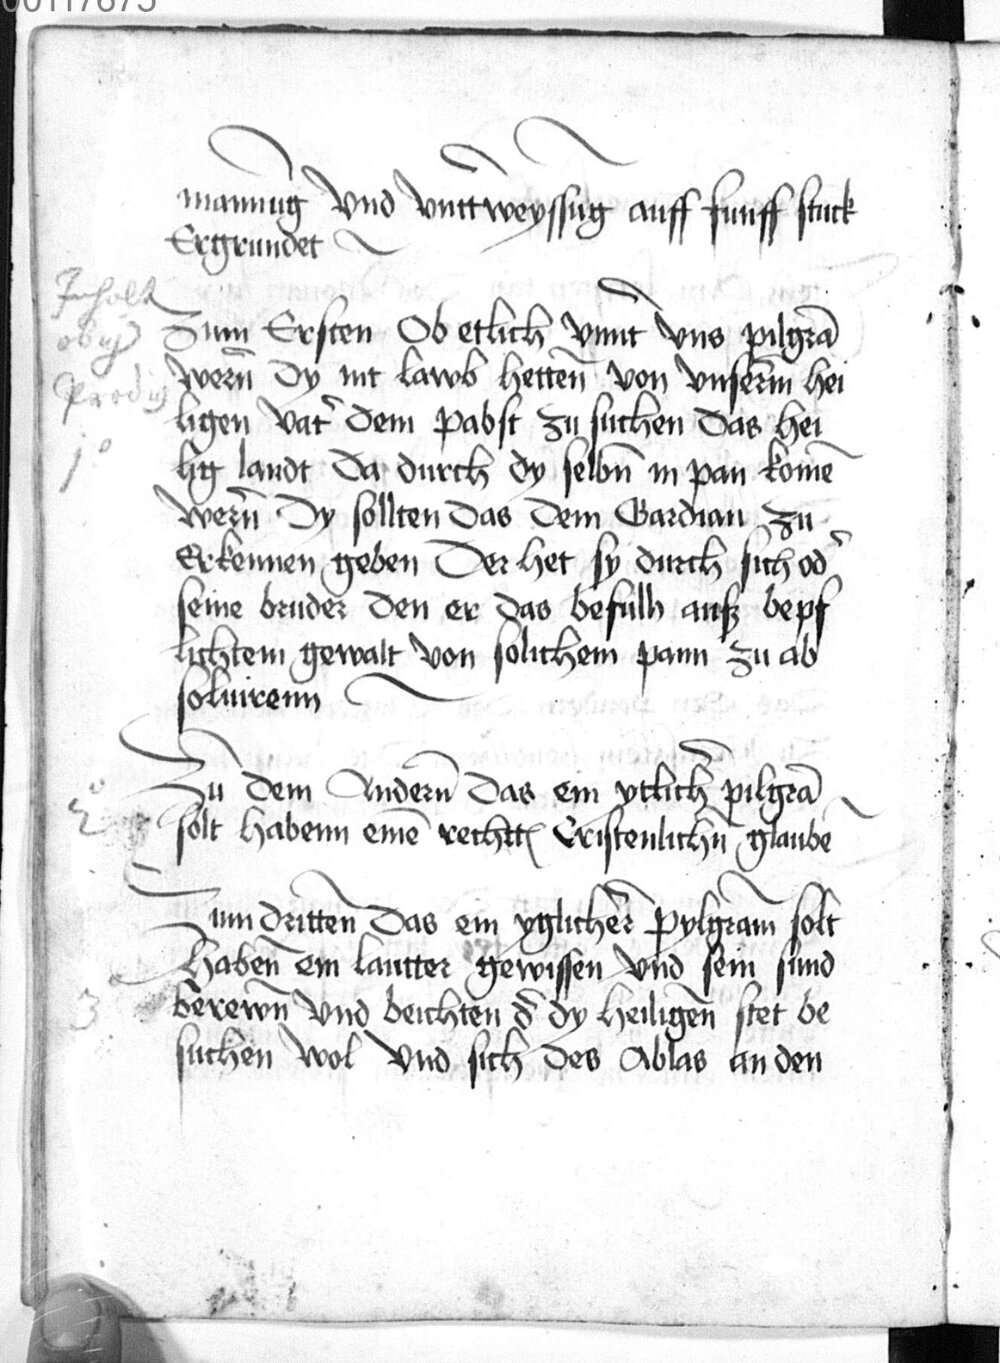 00117675
mannug Vnd Vnttweyssug auff funff stuck
Ergrundet
Inholt
Zum Ersten Ob etlich Vnnt Vns pilgrā
Wern̄ Dy nit lawb hetten̄ Von Vnserm̄ hei
ligen Vat̕ Dem Pabst Zu suchen Das hei
1°
lig landt Da durch dy selbn̄ in pan komē
Wern̄ Dy sollten Das Dem Gardian Zu
Erkennen geben Der het sy durch sich od̕
seine bruder Den er Das befulh auß bepf
lichtem gewalt Von solichem pann Zu ab
soluirenn
2°
Zu Dem Andern̄ Das ein ytlich̕ pilgrā
solt habenn einē rechtt Cristenlichn̄ glaubē
Zum dritten Das ein yglicher Pylgram solt
3°
haben ein lautter gewissen Vnd sein sund
berewn̄ Vnd beichten d̕ dy heiligen̄ stet be
suchen Wol Vnd sich Des Ablas an den